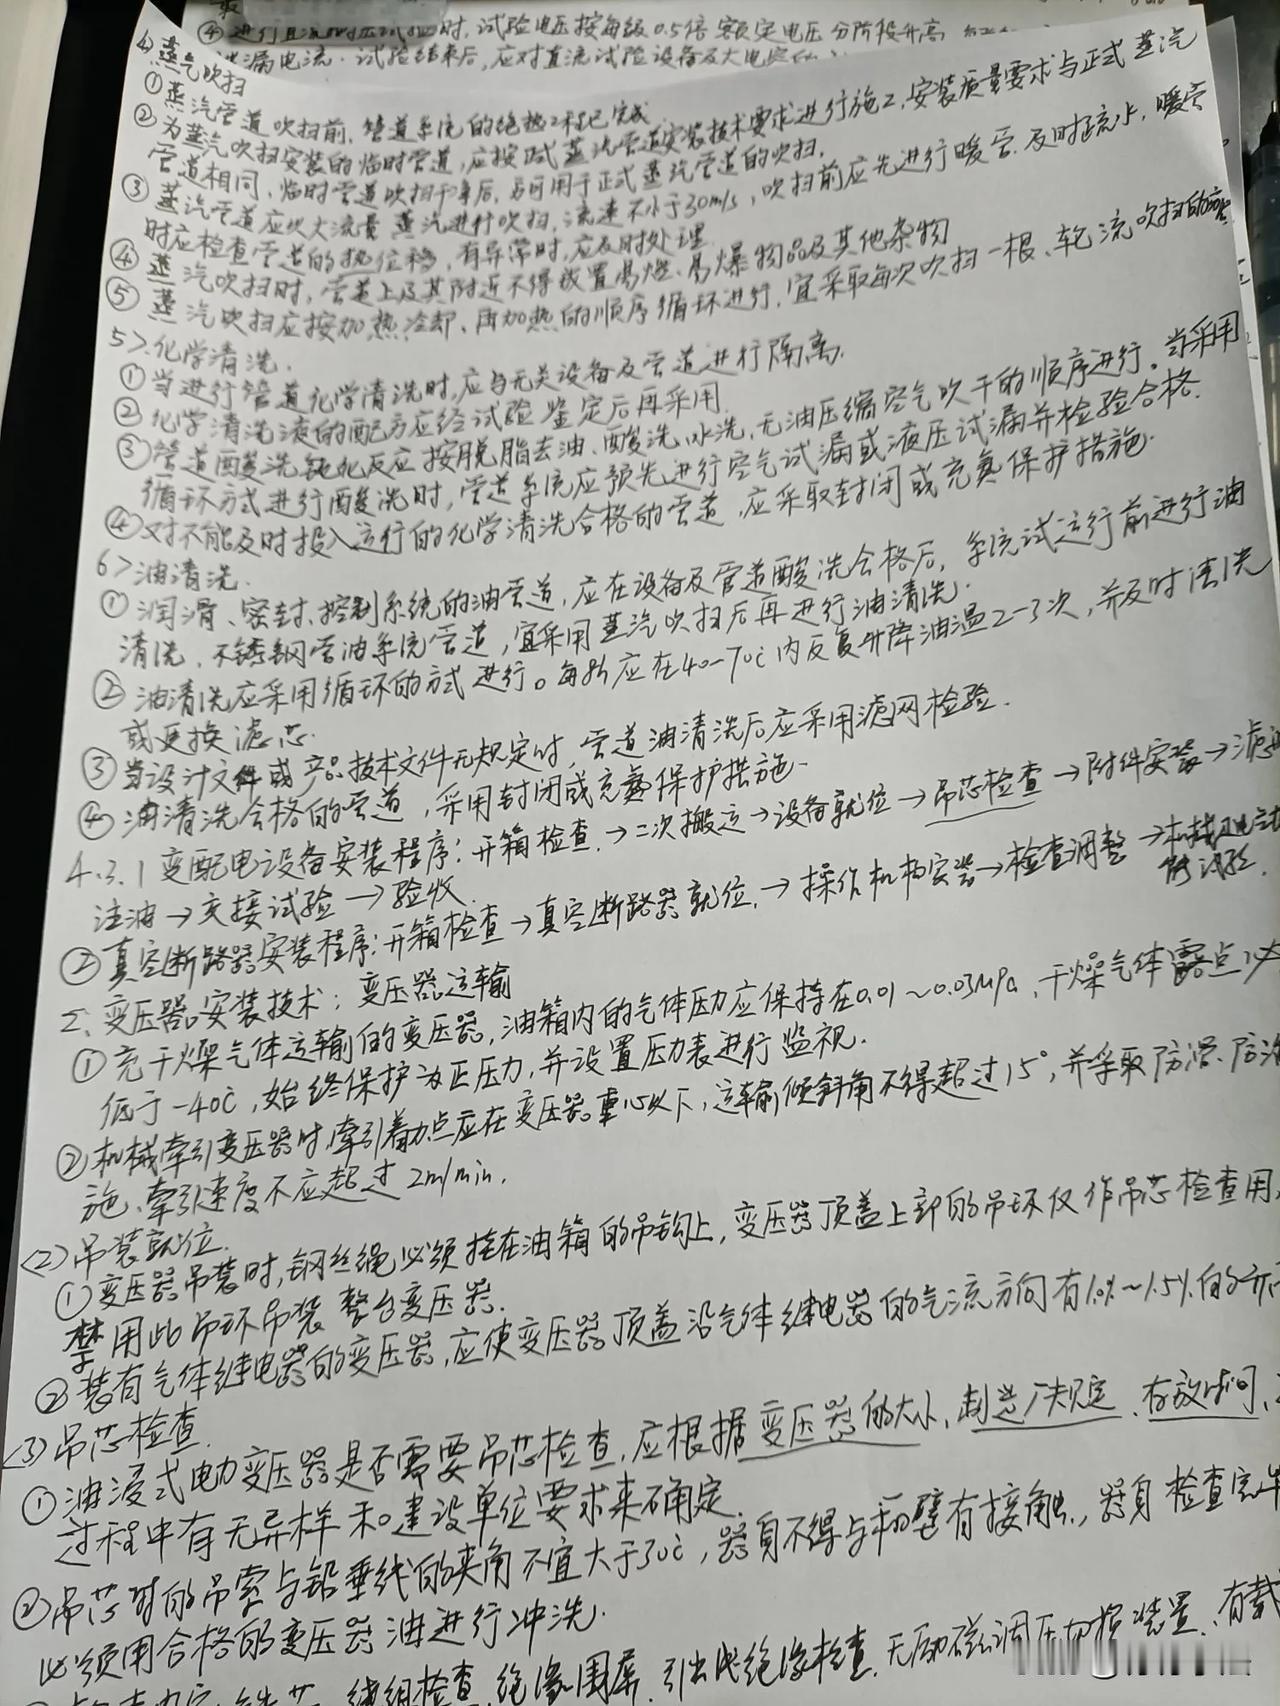 ④进行直流耐压试验时,试验电压按每级0.5倍额定电压分阶段升高
泄漏电流.试验结束后,应对直流试验设备及大电容的
4.蒸气吹扫
①蒸汽管道吹扫前,管道系统的绝热工程已完成
②为蒸汽吹扫安装的临时管道,应按正式蒸汽管道安装技术要求进行施工,安装质量要求与正式蒸汽
管道相同,临时管道吹扫干净后,方可用于正式蒸汽管道的吹扫.
③蒸汽管道应以大流量蒸汽进行吹扫,流速不小于30m/s,吹扫前应先进行暖管、及时疏水,暖管
时应检查管道的热位移,有异常时,应及时处理
④蒸汽吹扫时,管道上及其附近不得放置易燃、易爆物品及其他杂物
⑤蒸汽吹扫应按加热、冷却、再加热的顺序循环进行,宜采取每次吹扫一根、轮流吹扫的
5>.化学清洗.
①当进行管道化学清洗时,应与无关设备及管道进行隔离.
②化学清洗液的配方应经试验鉴定后再采用
③管道酸洗钝化反应按脱脂去油、酸洗、水洗、无油压缩空气吹干的顺序进行.当采用
循环方式进行酸洗时,管道系统应预先进行空气试漏或液压试漏并检验合格.
④对不能及时投入运行的化学清洗合格的管道,应采取封闭或充氮保护措施.
6>油清洗.
①润滑、密封、控制系统的油管道,应在设备及管道酸洗合格后,系统试运行前进行油
清洗、不锈钢管油系统管道,宜采用蒸汽吹扫后再进行油清洗.
②油清洗应采用循环的方式进行。每8h应在40-70℃内反复升降油温2-3次,并及时清洗
或更换滤芯.
③当设计文件或产品技术文件无规定时,管道油清洗后应采用滤网检验.
④油清洗合格的管道,采用封闭或充氮保护措施.
4.3.1变配电设备安装程序:开箱检查→二次搬运→设备就位→吊芯检查→附件安装→滤油
注油→交接试验→验收
②真空断路器安装程序:开箱检查→真空断路器就位→操作机构安装→检查调整→机械
试验.
2、变压器安装技术:变压器运输
①充干燥气体运输的变压器,油箱内的气体压力应保持在0.01~0.03MPa、干燥气体露点
低于-40℃,始终保护为正压力,并设置压力表进行监视.
②机械牵引变压器时,牵引着力点应在变压器重心以下,运输倾斜角不得超过15°,并采取防滑、防
施、牵引速度不应超过2m/min.
<2>吊装就位.
①变压器吊装时,钢丝绳必须挂在油箱的吊钩上,变压器顶盖上部的吊环仅作吊芯检查用,
禁用此吊环吊装整台变压器.
②装有气体继电器的变压器,应使变压器顶盖沿气体继电器的气流方向有1.0%~1.5%的升
<3>吊芯检查.
①油浸式电力变压器是否需要吊芯检查,应根据变压器的大小、制造厂规定、存放时间、
过程中有无异样和建设单位要求来确定.
②吊芯时的吊索与铅垂线的夹角不宜大于30℃,器身不得与箱壁有接触,器身检查完毕
必须用合格的变压器油进行冲洗.
铁芯、绕组检查、绝缘围屏、引出线绝缘检查、无励磁调压切换装置、有载